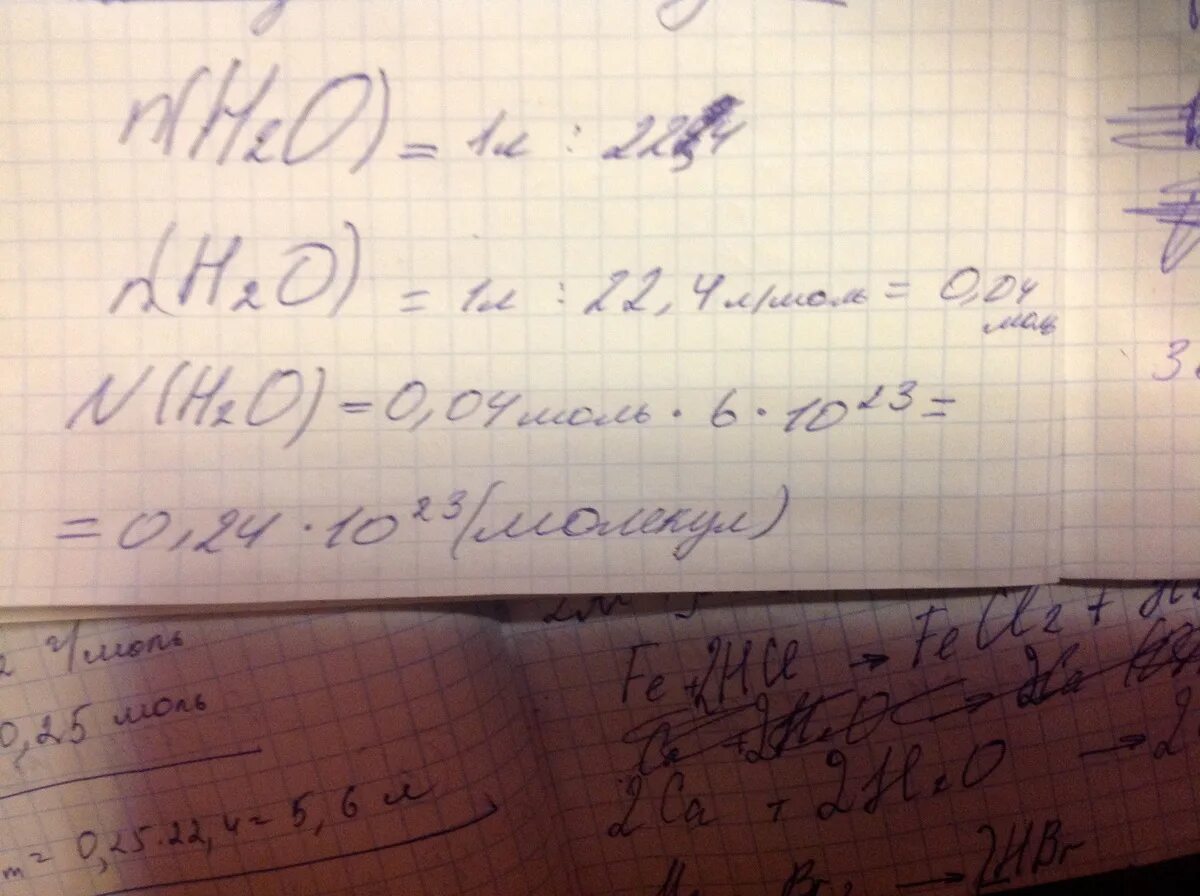 n(H₂O) = 1л : 22,4
n(H₂O) = 1л : 22,4 л/моль = 0,04 моль
N(H₂O) = 0,04 моль · 6 · 10²³ =
= 0,24 · 10²³ (молекул)
г/моль
0,25 моль
= 0,25·22,4 = 5,6 л
Fe + 2HCl → FeCl₂ + H₂
2Ca + 2H₂O → 2
Br₂ → 2HBr
3